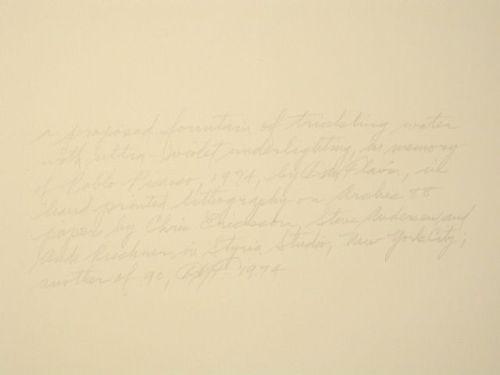 a proposed fountain of trickling water
with ultra-violet underlighting, in memory
of Pablo Picasso, 1974, by Dan Flavin, in
hand printed lithography on Arches 88
paper by Chris Erickson, Steve Andersen, and
in Styria Studio, New York City;
another of 90, 1974